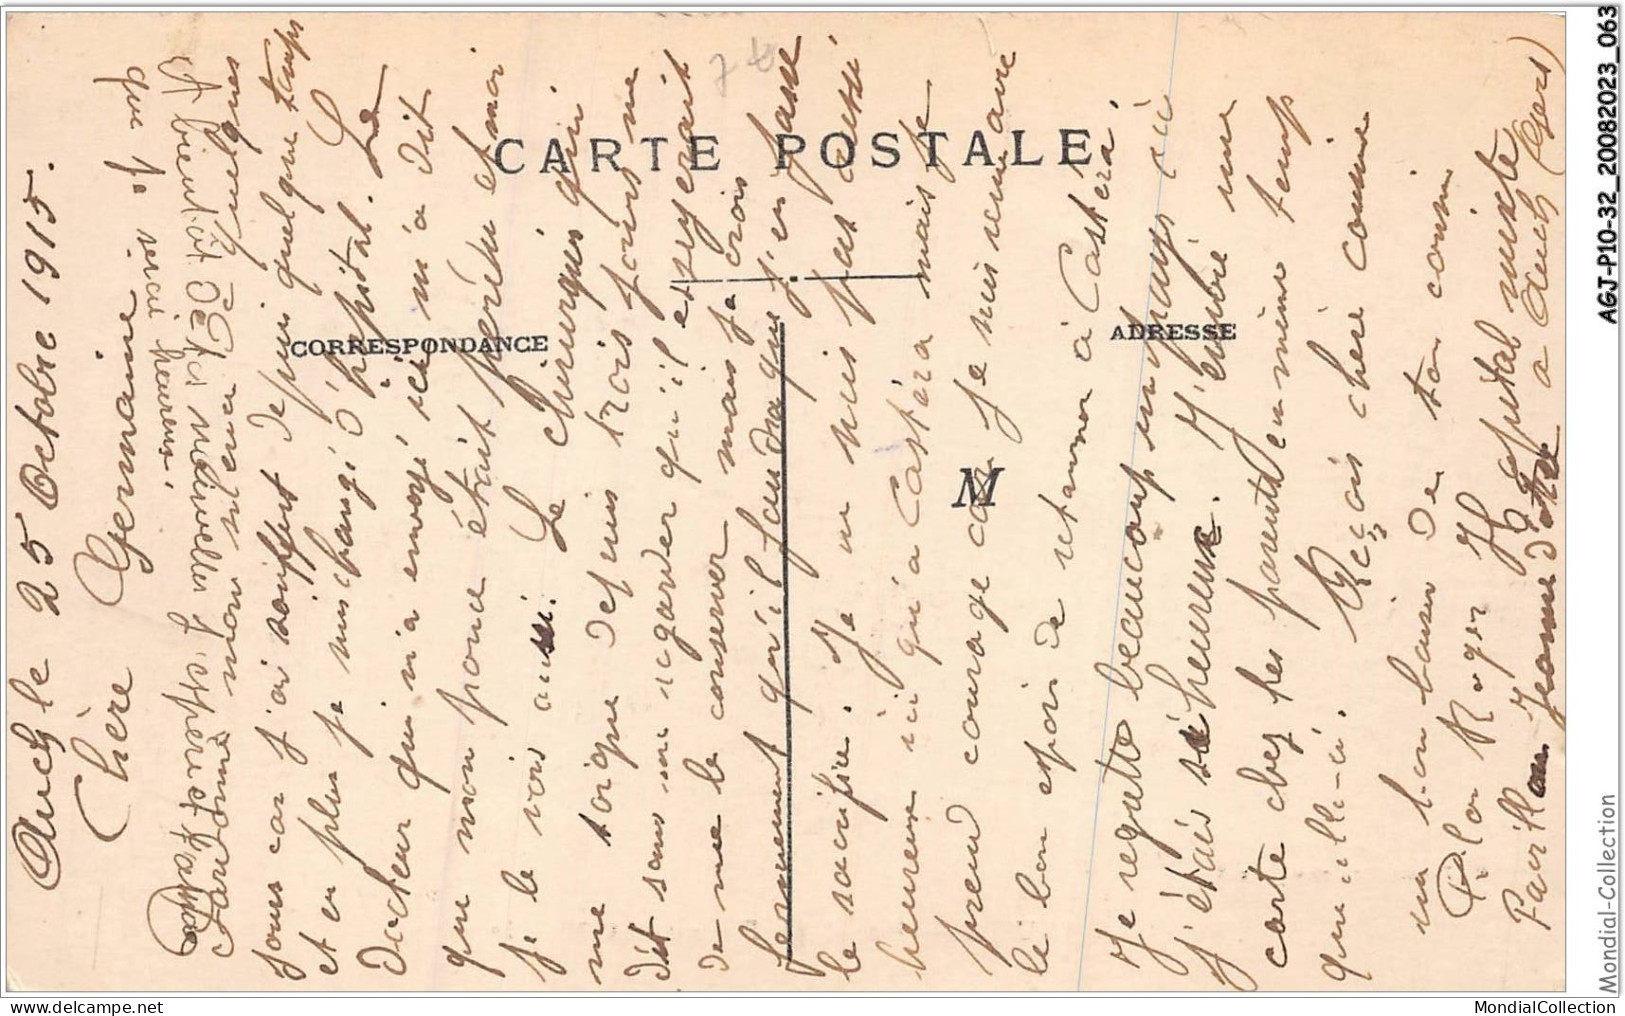 Auch le 25 Octobre 1915.
Chère Germaine
Pardonne mon silence quelques
jours car j'ai souffert depuis quelque temps
et en plus je suis changé d'hôpital. Le
Docteur qui m'a envoyé ici m'a dit
que mon pouce était perdu et moi
je le vois aussi. Le chirurgien qui
me soigne depuis trois jours me
dit sans me regarder qu'il essayerait
de me le conserver mais je crois
fermement qu'il faudra que j'en fasse
le sacrifice. Je ne suis pas aussi
heureux ici qu'a Castéra mais je
prend courage car je suis rennaivé
le bon espoir de retourner à Castéra.
Je regrette beaucoup un pays où
j'étais si heureux. J'ensbié une
carte chez tes parents en même temps
que celle-ci. Reçois chère cousine
un bon baiser de ton cousin
Clos Roger Hopital mixte
Pavillon Jeanne d'Arc a Auch (Gers)
A bientôt de tes nouvelles j'espère et
que je serai heureux.
CARTE POSTALE
CORRESPONDANCE
ADRESSE
M
AGJ-P10-32_20082023_063
Mondial-Collection
MondialCollection